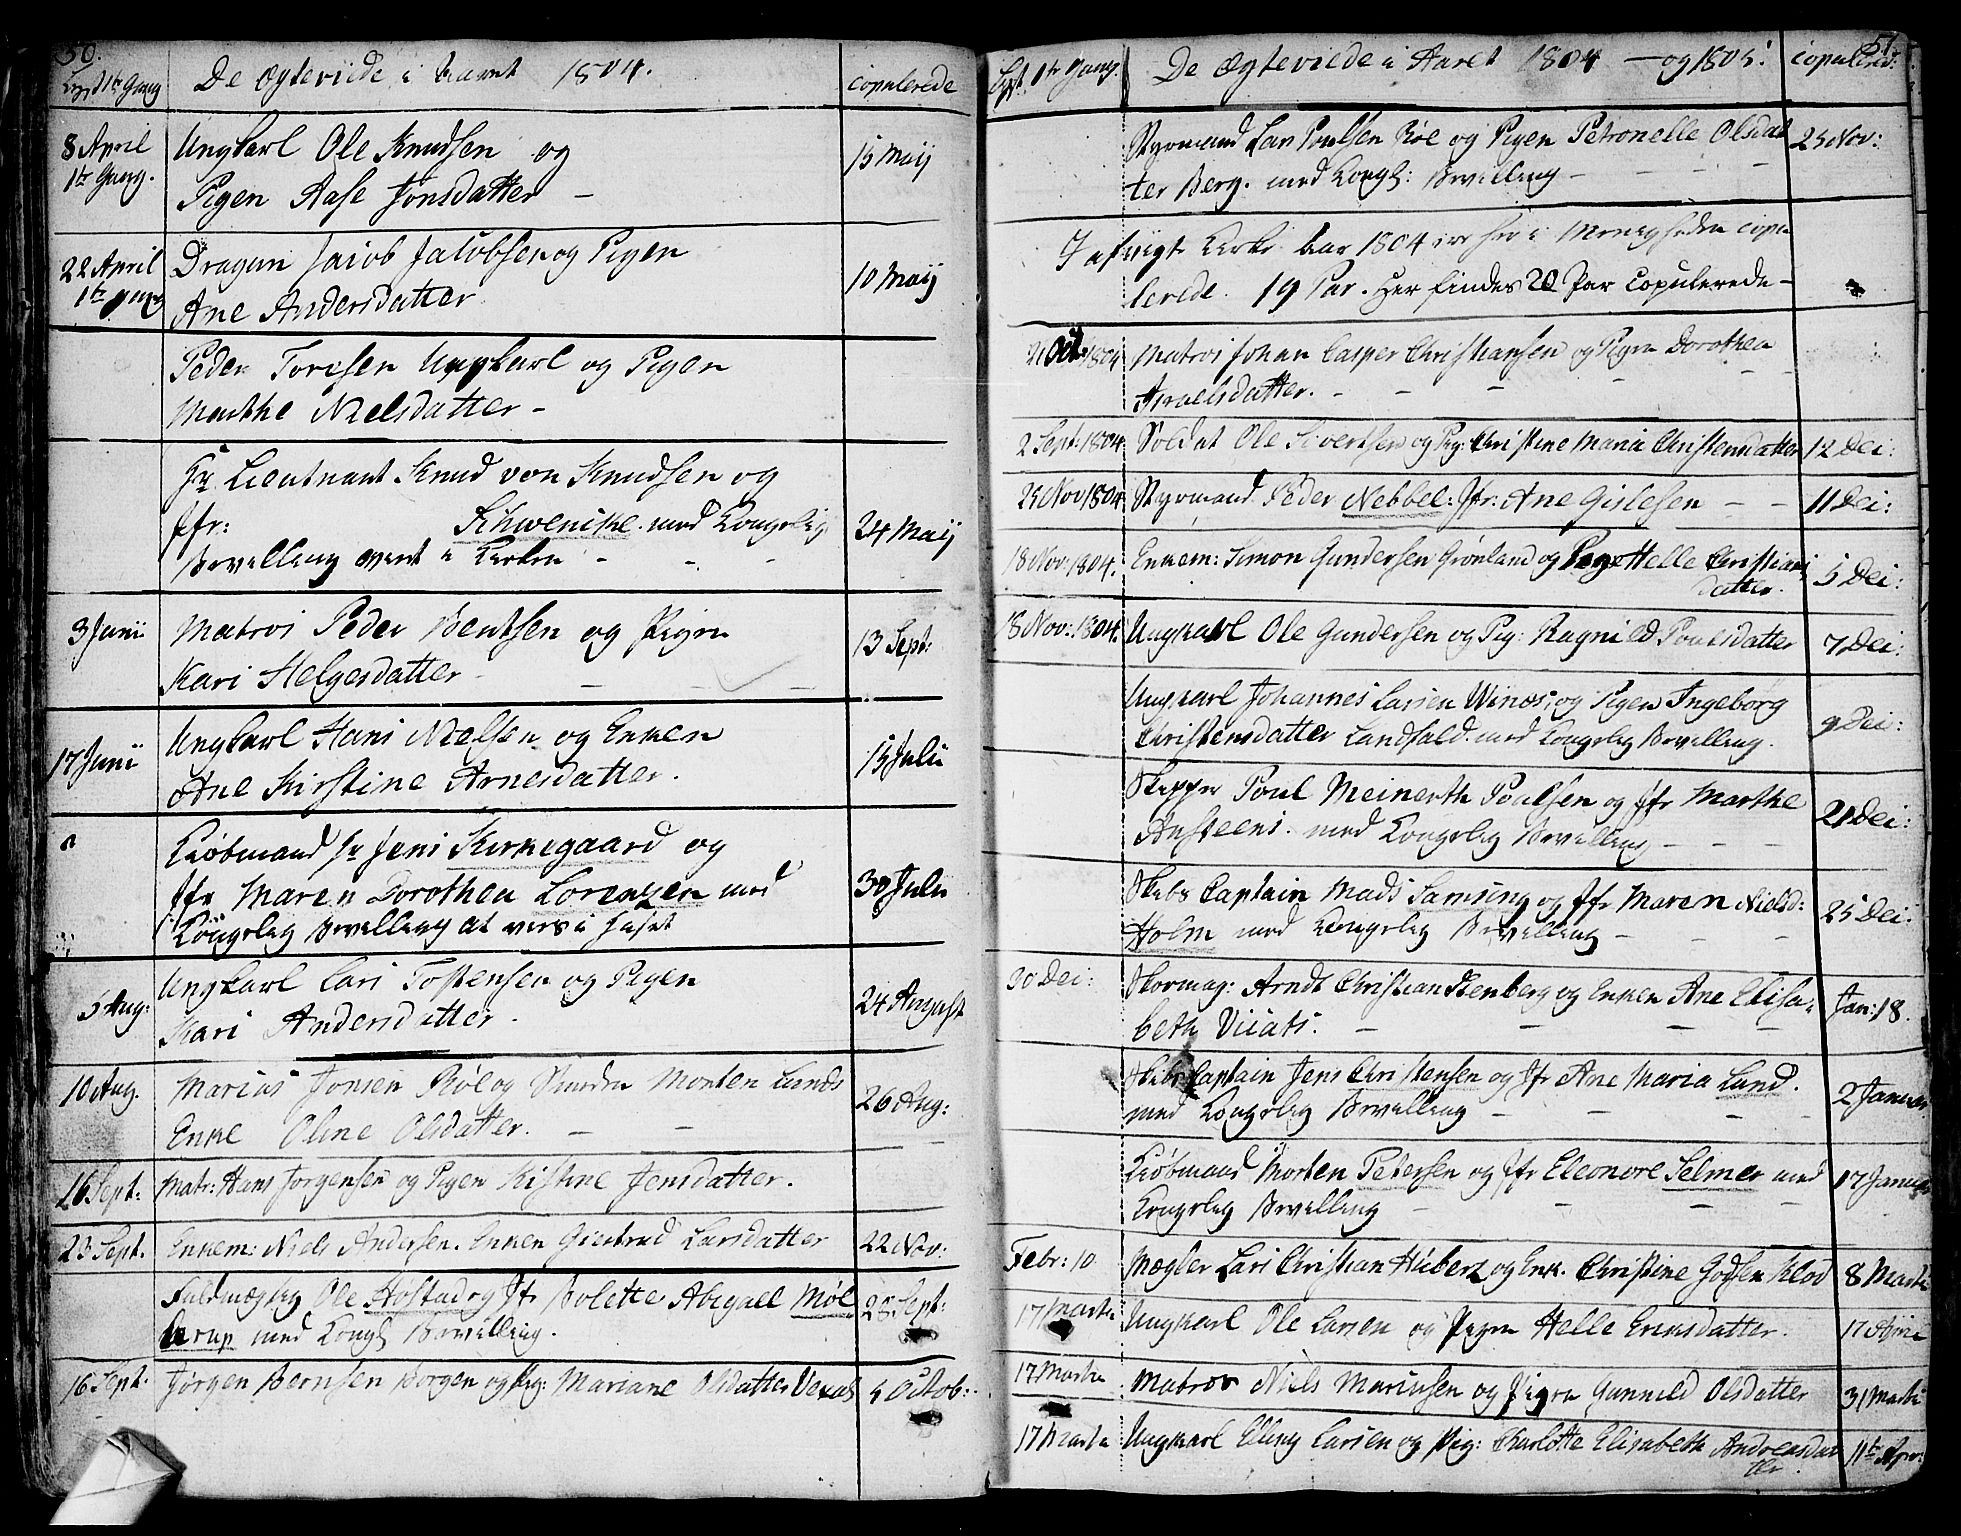 50.
Lyst 1te Gang De Ægteviede i Aaret 1804. copulerede
8 April Ungkarl Ole Knudsen og 15 Maij
1te Gang. Pigen Aase Jonsdatter —
22 April Dragun Jacob Jacobsen og Pigen 10 Maij
1te gang Ane Andersdatter
Peder Toresen Ungkarl og Pigen
Marthe Nielsdatter —
Hr Lieutnant Knud von Knudsen og
Jfr: Schwenike med Kongelig 24 Maij
Bevilling viet i Kirken — - -
3 Junii Matros Peder Bentsen og Pigen 13 Sept:
Kari Helgesdatter — — —
17 Junii Ungkarl Hans Nielsen og Enken 15 Julii
Ane Kirstine Arnesdatter.
Kiöbmand Hr Jens Kirkegaard og
Jfr Maren Dorothea Lorenzen med 30 Julii
Kongelig Bevilling at vies i Huset
5 Aug: Ungkarl Lars Tostensen og Pigen 24 August
Kari Andersdatter.
10 Aug. Marius Jonsen Röe og Morten Lunds 26 Aug:
Enke Oline Olsdatter. — —
16 Sept: Matr: Hans Jorgensen og Pigen Kistine Jensdatter.
23 Sept. Enkem: Niels Andersen. Enken Giertrud Larsdatter 22 Nov:
Fuldmægtig Ole Höstad og Jfr Bolette Abigael Möl 28 Sept:
lerup med Kongl Bevilling.
16 Sept. Jørgen Bernsen Borgen og Pig: Mariane Olsdatter 5 Octob:
51.
Lyst. 1te Gang. De Ægteviede i Aaret 1804 — og 1805: copulered:
Styrmand Lars Poulsen Röe og Pigen Petronelle Olsdat 25 Nov:
ter Berg. med Kongl: Bevilling — — — —
I afvigte Kirke Aar 1804 ere her i Menigheden copu
lerede. 19 Par. Her findes 20 Par copulerede —
21 Oct: 1804 Matros Johan Casper Christiansen og Pigen Dorothea
Israelsdatter. — — — — —
2 Sept: 1804. Soldat Ole Sivertsen og Pig: Christine Maria Christensdatter 12 Dec:
25 Nov 1804 Styrmand Peder Nebbel: Jfr: Ane Gislesen — — 11 Dec:
18 Nov: 1804. Enkem: Simon Gundersen Grönland og Pige Helle Christians 5 Dec:
datter.
18 Nov: 1804. Ungkarl Ole Gundersen og Pig: Ragnild Poulsdatter 7 Dec:
Ungkarl Johannes Larsen Winæs, og Pigen Ingeborg 9 Dec:
Christensdatter Landfald. med Kongelig Bevilling.
Skipper Poul Meinerth Poulsen og Jfr Marthe 21 Dec:
Ansteens. med Kongelig Bevilling — — —
Skibs Captain Mads Samsing og Jfr Maren Nielsd: 25 Dec:
Holm med Kongelig Bevilling — — —
30 Dec: Skormag: Arndt Christian Stenberg og Enken Ane Elisa= Jan: 18.
beth Viiats. — — — —
Skibs Captain Jens Christensen og Jfr Ane Maria Lund. 2 Januar
med Kongelig Bevilling — — — —
Kiöbmand Morten Petersen og Jfr Eleonore Selmer med 17 Januar
Kongelig Bevilling — — — —
Febr: 10 Mægler Lars Christian Hübertz og Enk. Christine Godsen Klod 8 Martii
17 Martii Ungkarl Ole Larsen og Pigen Helle Ericksdatter. 17
17 Martii Matros Niels Mariusen og Pigen Gunnild Olsdatter 31 Martii
17 Martii Ungkarl Elling Larsen og Pig: Charlotte Elisabeth Andreasdat 11te Apr:
ter.